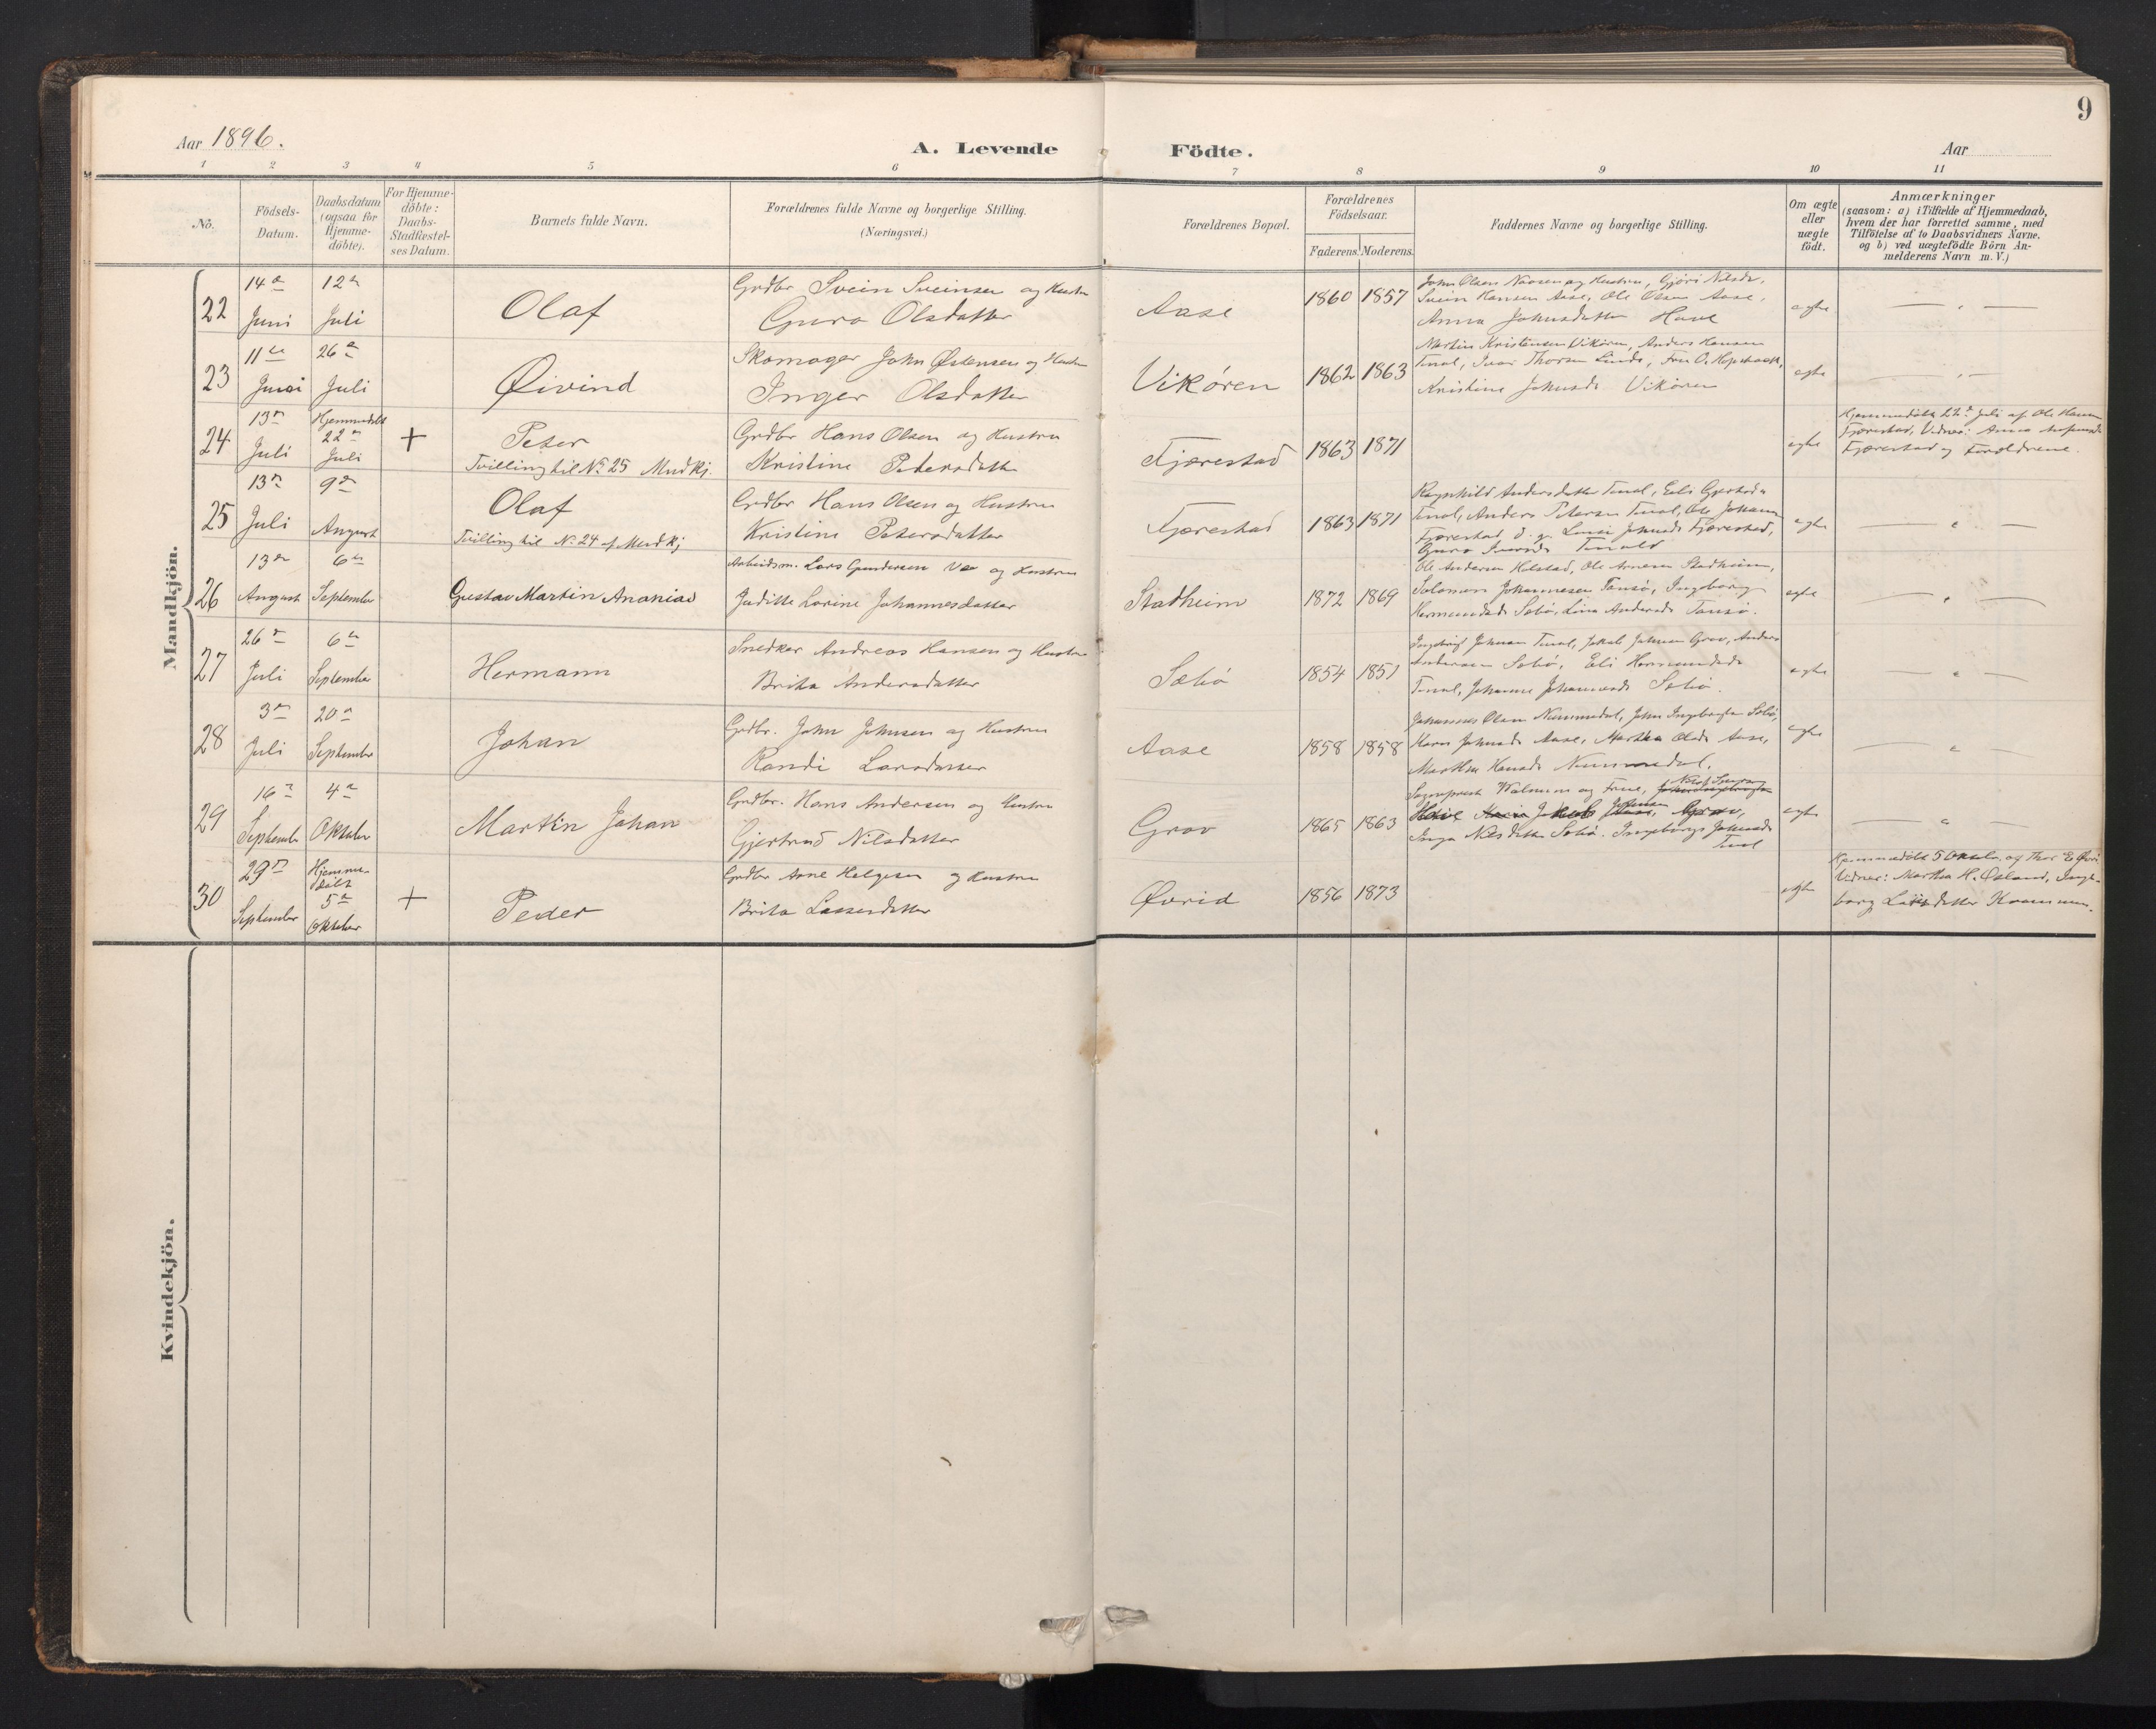 9
Aar 1896.
A. Levende Födte.
Aar
1 2 3 4 5 6 7 8 9 10 11
No.
Födsels-
Datum.
Daabsdatum
(ogsaa for
Hjemme-
döbte).
For Hjemme-
döbte:
Daabs-
Stadfæstel-
ses Datum.
Barnets fulde Navn.
Forældrenes fulde Navne og borgerlige Stilling.
(Næringsvei.)
Forældrenes Bopæl.
Forældrenes
Födselsaar.
Faderens. Moderens.
Faddernes Navne og borgerlige Stilling.
Om ægte
eller
uægte
födt.
Anmærkninger
(saasom: a) i Tilfælde af Hjemmedaab,
hvem der har forrettet samme, med
Tilföielse af to Daabsvidners Navne,
og b) ved uægtefödte Börn An-
melderens Navn m. V.)
Mandkjön.
22
14de
Juni
12te
Juli
Olaf
Grdbr Svein Sveinsen og Hustru
Guro Olsdatter
Aase
1860 1857
John Olsen og Hustru, Gjøri Nilsdr,
Svein Hansen Aase, Ole Olsen Aase,
Anna Johnsdatter Hove
ægte
23
11te
Juni
26de
Juli
Øivind
Skomager John Østensen og Hustru
Inger Olsdatter
Vikøren
1862 1863
Martin Kristensen Vikøren, Anders Hansen
Tenal, Ivar Thorsen Linde, Fru O. Hopstock,
Kristine Johnsdr Vikøren
ægte
24
13de
Juli
Hjemmedøbt
22de
Juli
+
Peter
Tvilling til No 25 Mndkj.
Grdbr Hans Olsen og Hustru
Kristine Petersdatter
Fjærestad
1863 1871
ægte
Hjemmedøbt 22de Juli af Ole Hansen
Fjærestad, Vidner: Anna
Fjærestad og Forældrene.
25
13de
Juli
9de
August
Olaf
Tvilling til No 24 af Mndkj
Grdbr Hans Olsen og Hustru
Kristine Petersdatter
Fjærestad
1863 1871
Ragnhild Andersdatter Tenal, Eli
Tenal, Anders Petersen Tenal, Ole Johann
Fjærestad, d. y. Johnsdr Fjærestad,
Guro
ægte
26
13de
August
6te
September
Gustav Martin Ananias
Arbeidsm. Lars Gundersen og Hustru
Juditte Larine Johannesdatter
Stadheim
1872 1869
Ole Andersen Helstad, Ole Arnesen Stadheim,
Salomon Johannesen Tansø, Ingeborg
Hermundsdr Sæbø, Lina Andersdr Tansø.
ægte
27
26de
Juli
6te
September
Hermann
Snedker Andreas Hansen og Hustru
Brita Andersdatter
Sæbø
1854 1851
Johnsen Tenal, Jakob Johnsen Grov, Anders
Andersen Sæbø, Eli Hermundsdr
Tenal, Johanne Johannesdr Sæbø.
ægte
28
3de
Juli
20de
September
Johan
Grdbr. John Johnsen og Hustru
Randi Larsdatter
Aase
1858 1858
Johannes Olsen Nummedal, John Ingebrigtsen Sæbø,
Karn Johnsdr Aase, Martha Olsdr Aase,
Marthe Hansdr Nummedal.
ægte
29
16de
September
4de
Oktober
Martin Johan
Grdbr. Hans Andersen og Hustru
Gjertrud Nilsdatter
Grov
1865 1863
Sogneprest Walnum og Frue,
Jakob Johnsen Grov,
Inga Nilsdatter Sæbø. Ingeborg Johnsdr
Tenal
ægte
30
29de
September
Hjemme-
døbt
5te
Oktober
+
Peder
Grdbr Arne Helgesen og Hustru
Brita Lassesdatter
Øvrid
1856 1873
ægte
Hjemmedøbt 5 Oktober af Thor E Øvri
Vidner: Martha H. Osland, Inge-
borg
Kvindekjön.